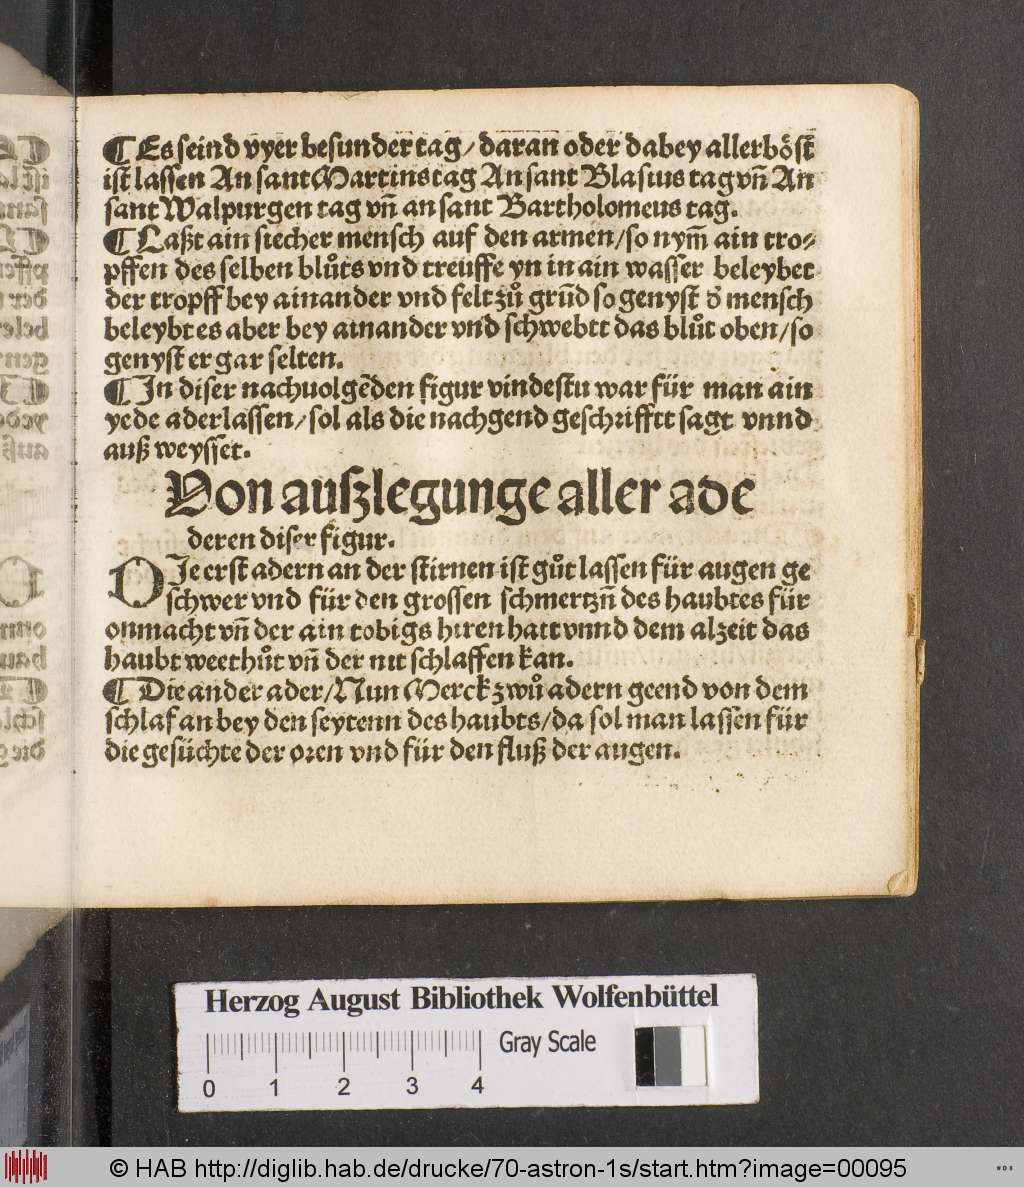 ¶ Es seind vyer besunder tag/ daran oder dabey allerbo̊st̄
ist lassen An sant Martins tag An sant Blasius tag vn̄ An
sant Walpurgen tag vn̄ an sant Bartholomeus tag.
¶ Laßt ain siecher mensch auf den armen/so nym̄ ain tro⸗
pffen des selben blůts vnd treuffe yn in ain wasser beleybet
der tropff bey ainander vnd felt zů grūd so genyst d̓ mensch
beleybt es aber bey ainander vnd schwebtt das blůt oben/so
genyst er gar selten.
¶ In diser nachuolgēden figur vindestu war für man ain
yede aderlassen/sol als die nachgend geschrifftt sagt vnnd
auß weysset.
Von außlegunge aller ade
deren diser figur.
DIe erst adern an der stirnen ist gůt lassen für augen ge
schwer vnd für den grossen schmertzn̄ des haubtes für
onmacht vn̄ der ain tobigs hiren hatt vnnd dem alzeit das
haubt wee thůt vn̄ der nit schlaffen kan.
¶ Die ander ader/Nun Merck zwů adern geend von dem
schlaf an bey den seytenn des haubts/da sol man lassen für
die gesüchte der oren vnd für den fluß der augen.
Herzog August Bibliothek Wolfenbüttel
Gray Scale
0 1 2 3 4
© HAB http://diglib.hab.de/drucke/70-astron-1s/start.htm?image=00095